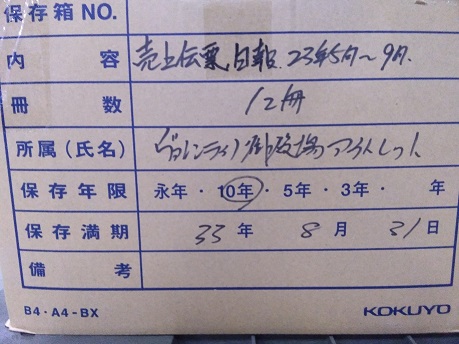 保存箱NO.
内容 売上伝票日報.23年5月～9月.
冊数 12冊
所属(氏名) ヴァレンティノ御殿場アウトレット
保存年限 永年・10年・5年・3年・ 年
保存満期 33年 8月 31日
備考
B4・A4-BX KOKUYO